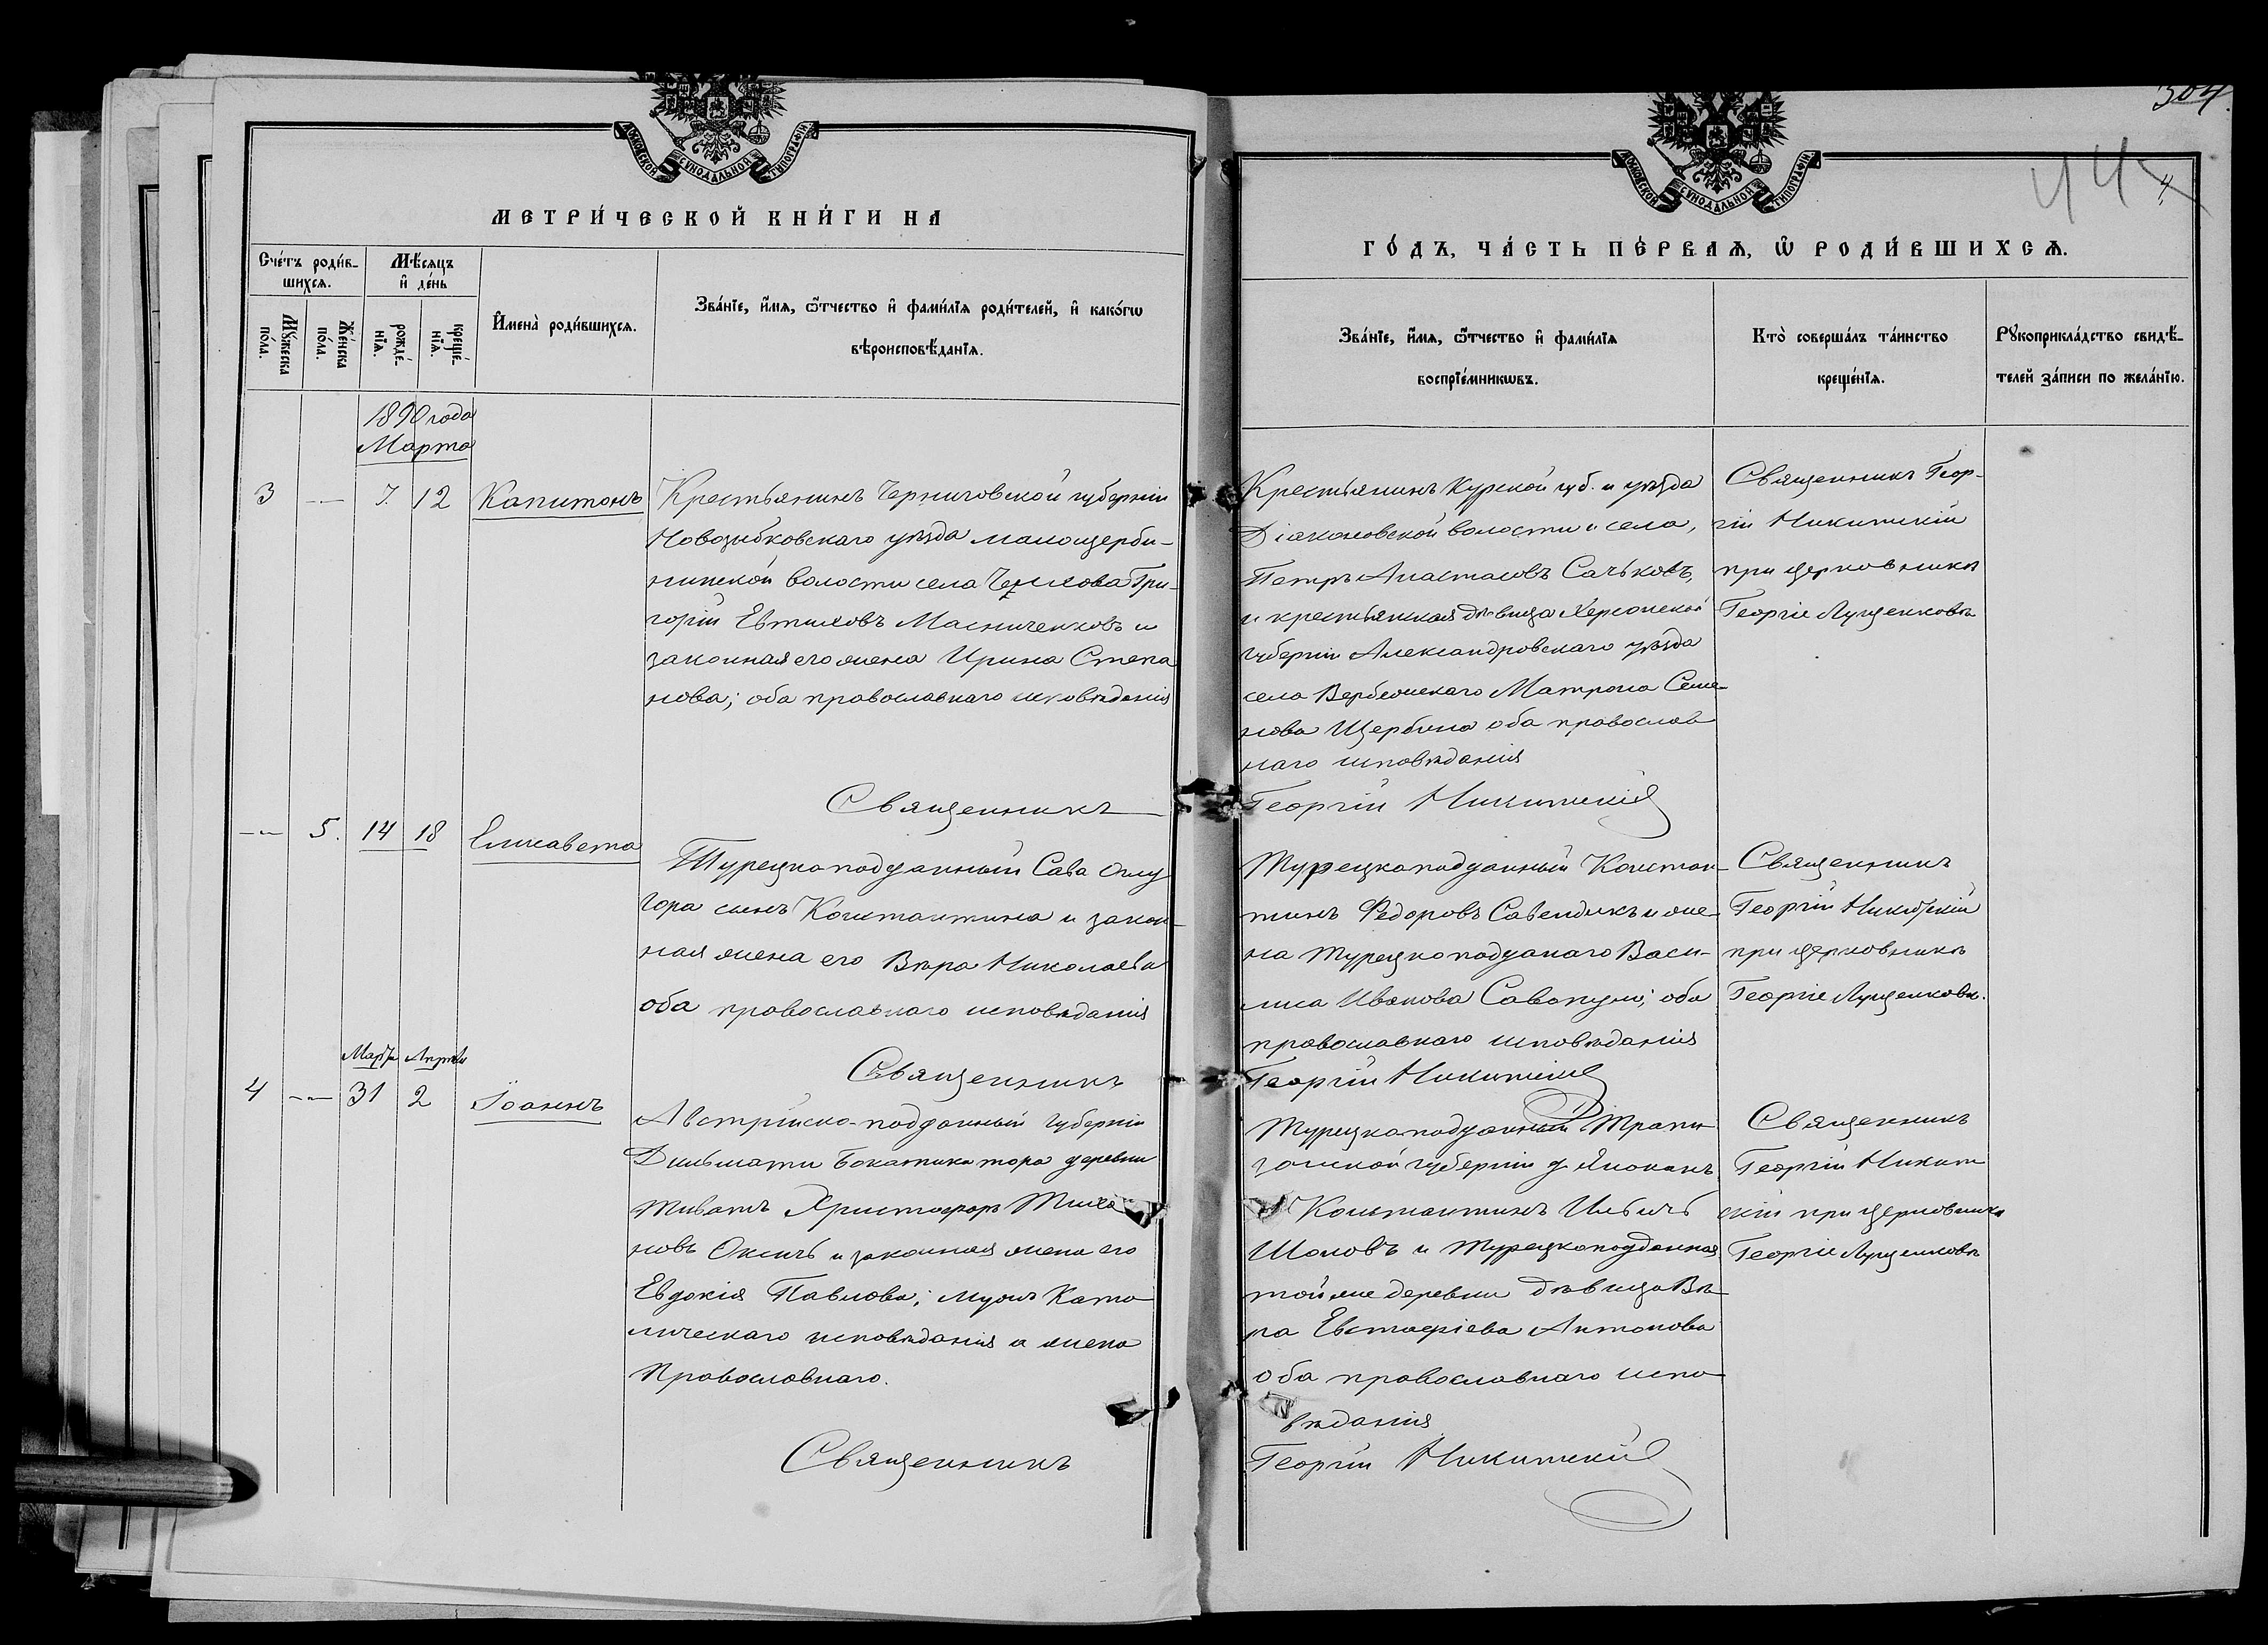 МОСКОВСКОЙ СУНОДАЛЬНОЙ ТЫПОГРАФІИ
МЕТРИ́ЧЕСКОЙ КНИ́ГИ НА
Сче́тъ роди́в-
шихся.
Мѣ́сяцъ
и҆ де́нь
Мꙋ́жеска по́ла.
Же́нска по́ла.
рожде́-
нїѧ.
креще́-
нїѧ.
И҆мена̀ роди́вшихсѧ.
Зва́нїе, и҆́мѧ, ѻ҆́тчество и҆ фами́лїѧ роди́телей, и҆ како́гѡ
вѣроисповѣ́данїѧ.
1890 года
Марта
3 — 7. 12 Капитонъ
Крестьянинъ Черниговской губерніи
Новозыбковскаго уѣзда малощерби-
нинской волости села Гри-
горій Евтиховъ Масниченковъ и
законная его жена Ирина Степа
нова; оба православнаго исповѣданія
Священникъ
— 5. 14 18 Елисавета
Турецкоподданный Сава Оглу
Гора сынъ Константина и закон-
ная жена его Вѣра Николаева
оба православнаго исповѣданія
Священникъ
Марта Апрѣля
4 — 31 2 Іоаннъ
Австрійско-подданный губерніи
Дильмати деревни
Тиватъ Христофоръ
новъ Оксичъ и законная жена его
Евдокія Павлова; мужъ Като
лическаго исповѣданія а жена
Православнаго.
Священникъ
304.
44
4
МОСКОВСКОЙ СУНОДАЛЬНОЙ ТЫПОГРАФІИ
ГО́ДЪ, ЧА́СТЬ ПЕ́РВАѦ, Ѡ҆ РОДИ́ВШИХСѦ.
Зва́нїе, и҆́мѧ, ѻ҆́тчество и҆ фами́лїѧ
воспрїе́мникѡвъ.
Кто̀ соверша́лъ та́инство
креще́нїѧ.
Рꙋкоприкла́дство свидѣ́-
телей за́писи по жела́нїю.
Крестьянинъ Курской губ. и уѣзда
Діяконовской волости и села,
Петръ Анастасовъ Сачьковъ,
и крестьянская дѣвица Херсонской
губерніи Александровскаго уѣзда
села Матрона Семе-
нова Щербина оба православ
наго исповѣданія
Георгій Никитскій
Священникъ Геор-
гій Никитскій
при церковникѣ
Георгіе Лущенковѣ
Турецкоподданный Констан-
тинъ Федоровъ Савендикъ и же-
на турецкоподданаго Васи-
лиса Иванова Савопуло; оба
православнаго исповѣданія
Георгій Никитскій
Священникъ
Георгій Никитскій
при церковникѣ
Георгіе Лущенковѣ.
Турецкоподданный Трапи
зонской губерніи д.
Константинъ Ильичъ
Шоловъ и турецкоподданная
той же деревни дѣвица Вѣ-
ра Евстафіева Антонова
оба православнаго испо-
вѣданія
Георгій Никитскій
Священникъ
Георгій Никит
скій при церковникѣ
Георгіе Лущенковѣ